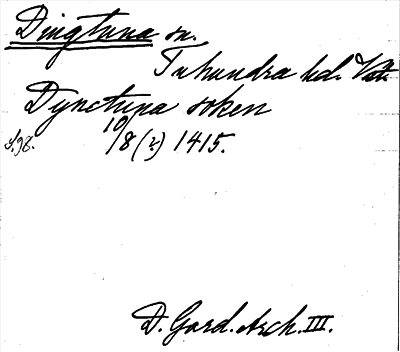 Dingtuna sn.
Tuhundra hd. Vstm.
Dynctuna soken
10/8 (?) 1415.
D. Gard. Arch. III.